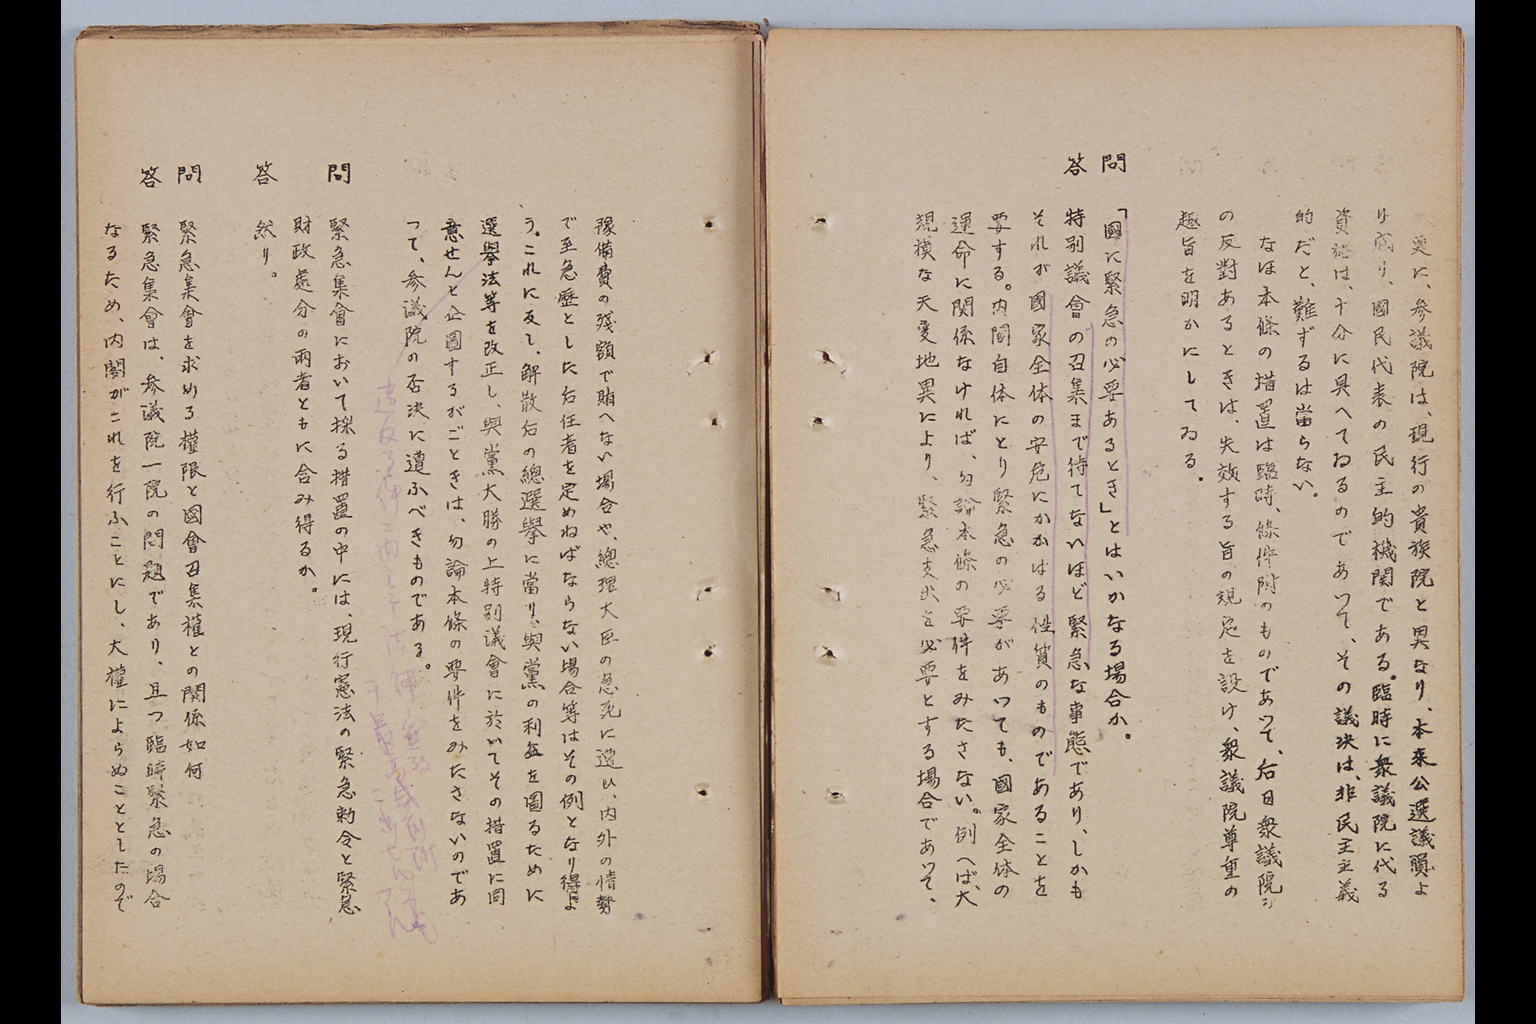 更に、參議院は、現行の貴族院と異なり、本來公選議員よ
り成り、國民代表の民主的機関である。臨時に衆議院に代る
資格は、十分に具へてゐるのであつて、その議決は、非民主主義
的だと、難ずるは當らない。
なほ本條の措置は臨時、條件附のものであつて、后日衆議院
の反對あるときは、失效する旨の規定を設け、衆議院尊重の
趣旨を明かにしてゐる。
問 「國に緊急の必要あるとき」とはいかなる場合か。
答 特別議會の召集まで待てないほど緊急な事態であり、しかも
それが國家全体の安危にかかはる性質のものであることを
要する。内閣自体にとり緊急の必要があつても、國家全体の
運命に関係なければ、勿論本條の要件をみたさない。例へば、大
規模な天変地異により、緊急支出を必要とする場合であつて、
豫備費の殘額で賄へない場合や、總理大臣の急死に遭ひ、内外の情勢
で至急歴とした后任者を定めねばならない場合等はその例となり得よ
う。これに反し、解散后の總選擧に當り、與黨の利益を圖るために
選擧法等を改正し、與黨大勝の上特別議會に於いてその措置に同
意せんと企圖するがごときは、勿論本條の要件をみたさないのであ
つて、參議院の否決に遭ふべきものである。
問 緊急集會において採る措置の中には、現行憲法の緊急勅令と緊急
財政處分の兩者ともに含み得るか。
答 然り。
問 緊急集會を求める權限と國會召集權との関係如何
答 緊急集會は、參議院一院の問題であり、且つ臨時緊急の場合
なるため、内閣がこれを行ふことにし、大權によらぬこととしたので